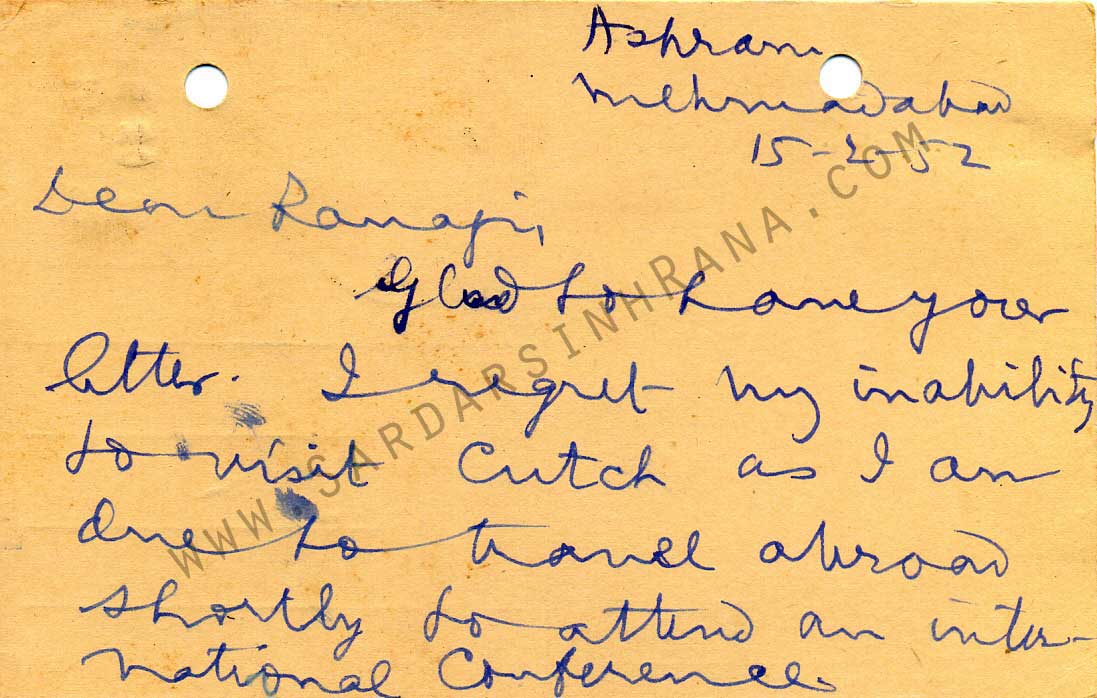 Ashram
Mehmadabad
15-2-52
Dear Ranaji,
Glad to have your
letter. I regret my inability
to visit Cutch as I am
due to travel abroad
shortly to attend an inter-
national Conference.
WWW.SARDARSINHRANA.COM